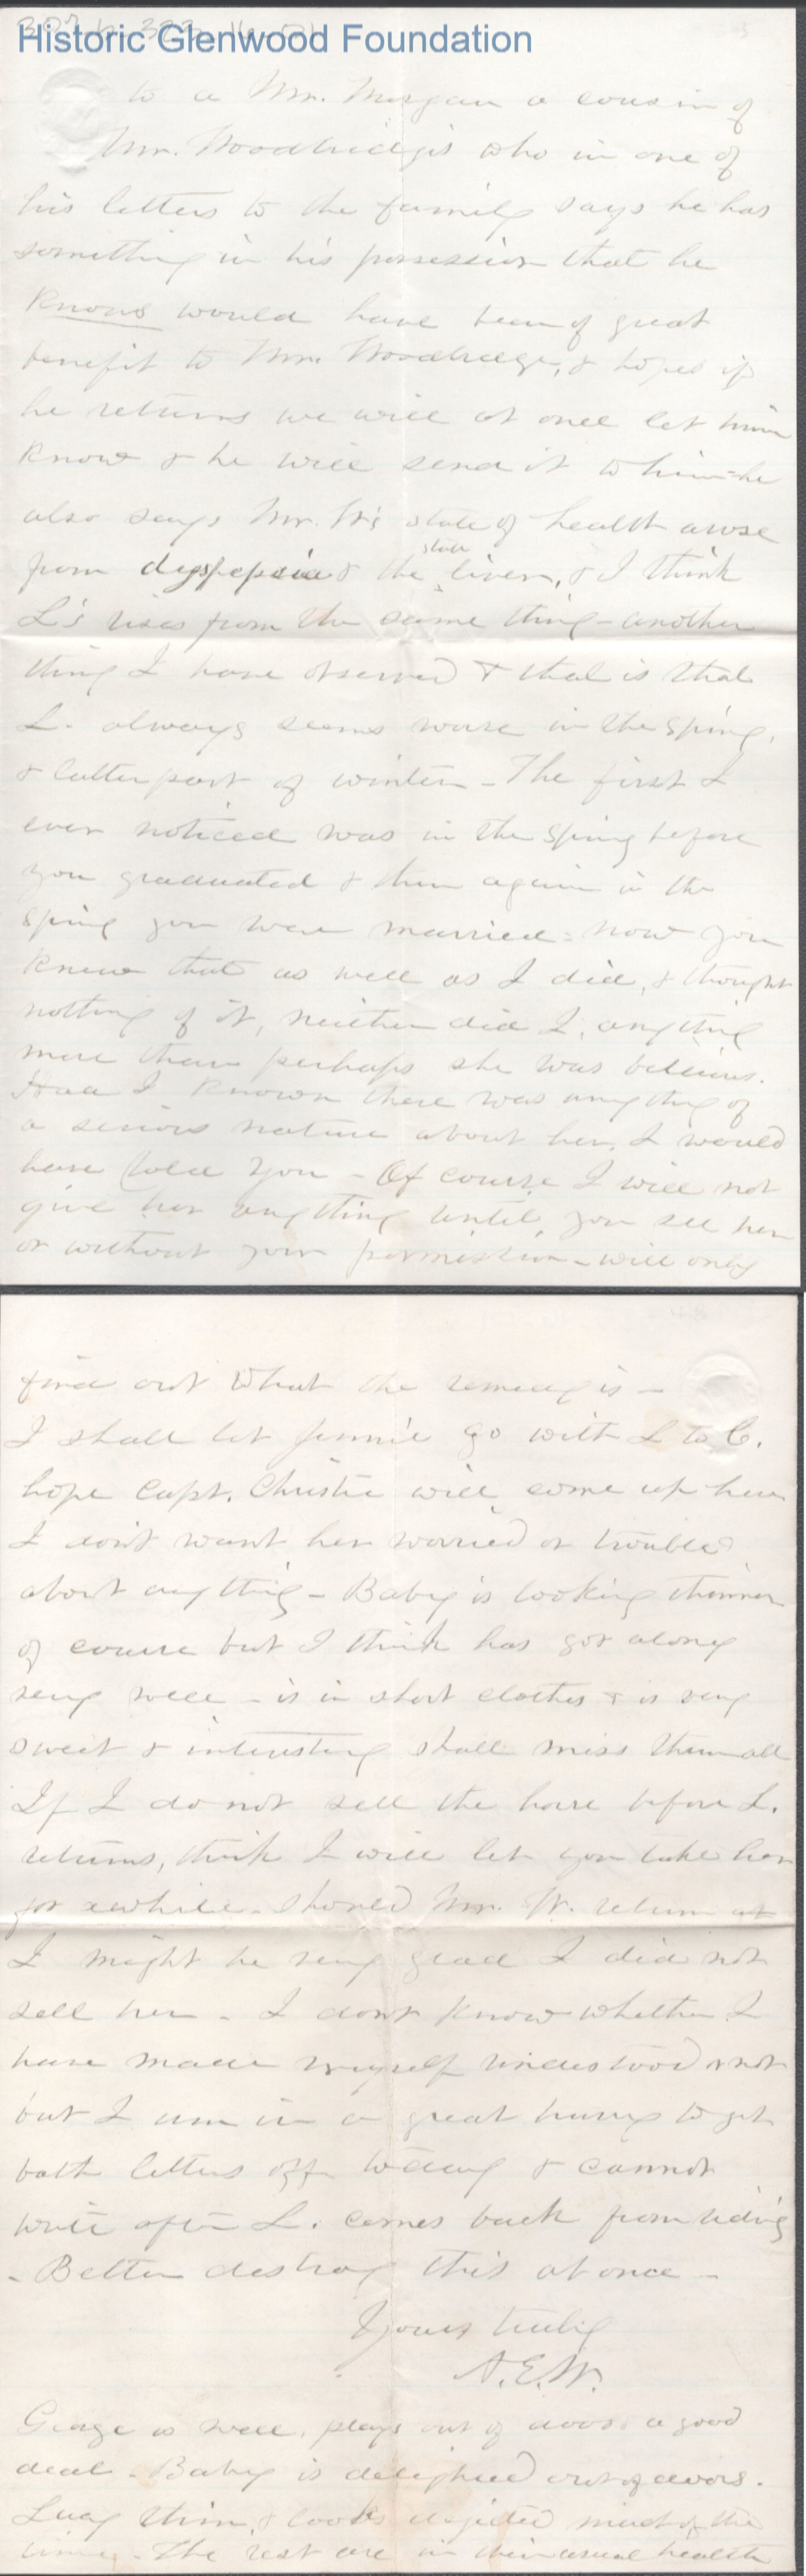 Historic Glenwood Foundation
to a Mr. Morgan a cousin of
Mr. Woodbridge's who in one of
his letters to the family says he has
something in his possession that he
knows would have been of great
benefit to Mr. Woodbridge, & hopes if
he returns we will at once let him
know & he will send it to him - he
also says Mr. W's state of health arose
from dyspepsia & the liver, & I think
L's rises from the same thing - another
thing I have observed & that is that
L. always seems worse in the spring,
& latter part of winter - The first I
ever noticed was in the spring before
you graduated & then again in the
spring you were married - now you
knew that as well as I did, & thought
nothing of it, neither did I, anything
more than perhaps she was bilious.
Had I known there was anything of
a serious nature about her, I would
have told you - Of course I will not
give her anything until you see her
or without your permission - will only
find out what the remedy is -
I shall let Jennie go with L to C.
hope Capt. Christie will come up here
I don't want her worried or troubled
about anything - Baby is looking thinner
of course but I think has got along
very well - is in short clothes & is very
sweet & interesting shall miss them all
If I do not sell the horse before L.
returns, think I will let you take her
for awhile. Should Mr. W. return
I might be very glad I did not
sell her - I don't know whether I
have made myself understood or not
but I am in a great hurry to get
both letters off today & cannot
write after L. comes back from riding
- Better destroy this at once -
Yours truly
A.E.W.
George is well, plays out of doors a good
deal - Baby is delighted out of doors.
Lucy thin, & looks dejected most of the
time - The rest are in their usual health